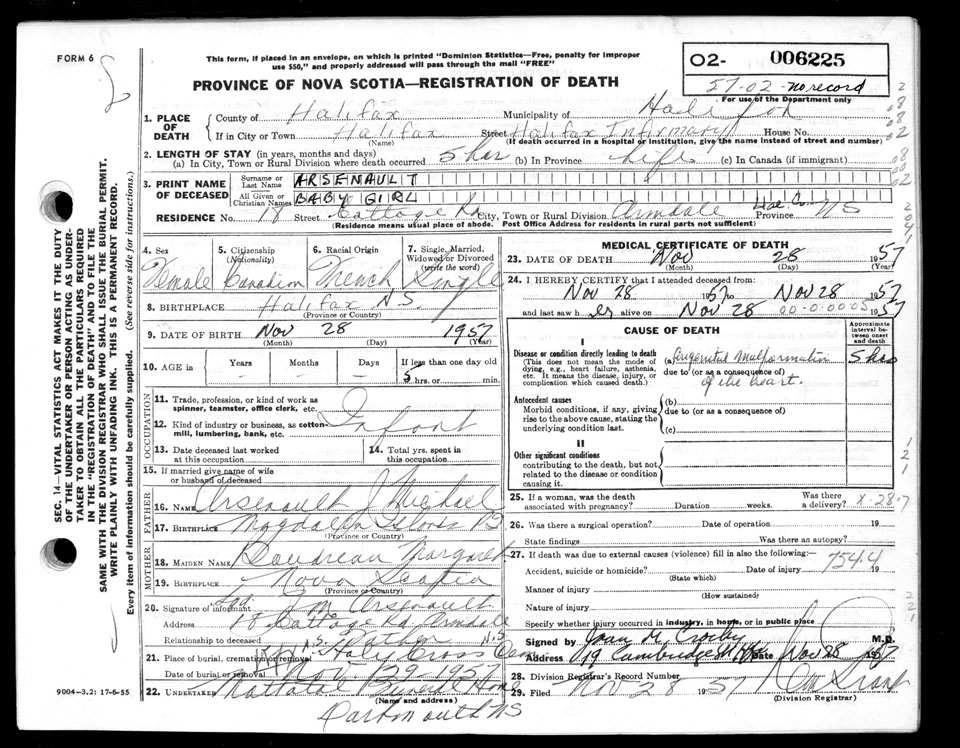 FORM 6
This form, if placed in an envelope, on which is printed "Dominion Statistics—Free, penalty for improper
use $50," and properly addressed will pass through the mail "FREE"
02- 006225
57-02 - no record
For use of the Department only
PROVINCE OF NOVA SCOTIA—REGISTRATION OF DEATH
1. PLACE OF DEATH
County of Halifax Municipality of Halifax
If in City or Town Halifax Street Halifax Infirmary House No.
(Name) (If death occurred in a hospital or institution, give the name instead of street and number)
2. LENGTH OF STAY (in years, months and days)
(a) In City, Town or Rural Division where death occurred 5 hrs (b) In Province Life (c) In Canada (if immigrant)
3. PRINT NAME OF DECEASED
Surname or Last Name ARSENAULT
All Given or Christian Names BABY GIRL
RESIDENCE No. 18 Street Cottage Rd City, Town or Rural Division Armdale Hal. Co. Province NS
(Residence means usual place of abode. Post Office Address for residents in rural parts not sufficient)
SEC. 14—VITAL STATISTICS ACT MAKES IT THE DUTY
OF THE UNDERTAKER OR PERSON ACTING AS UNDER-
TAKER TO OBTAIN ALL THE PARTICULARS REQUIRED
IN THE "REGISTRATION OF DEATH" AND TO FILE THE
SAME WITH THE DIVISION REGISTRAR WHO SHALL ISSUE THE BURIAL PERMIT.
WRITE PLAINLY WITH UNFADING INK. THIS IS A PERMANENT RECORD.
Every item of information should be carefully supplied. (See reverse side for instructions.)
4. Sex Female
5. Citizenship (Nationality) Canadian
6. Racial Origin French
7. Single, Married, Widowed or Divorced (write the word) Single
8. BIRTHPLACE Halifax N.S.
(Province or Country)
9. DATE OF BIRTH Nov 28 1957
(Month) (Day) (Year)
10. AGE in Years Months Days If less than one day old
5 hrs. or min.
OCCUPATION
11. Trade, profession, or kind of work as
spinner, teamster, office clerk, etc.
12. Kind of industry or business, as cotton-
mill, lumbering, bank, etc. Infant
13. Date deceased last worked
at this occupation
14. Total yrs. spent in
this occupation
15. If married give name of wife
or husband of deceased
FATHER
16. NAME Arsenault J Michael
17. BIRTHPLACE Magdalen Islands
(Province or Country)
MOTHER
18. MAIDEN NAME Boudreau Margaret
19. BIRTHPLACE Nova Scotia
(Province or Country)
20. Signature of informant J. M. Arsenault
Address 18 Cottage Rd, Armdale N.S.
Relationship to deceased Father
21. Place of burial, cremation or removal Holy Cross Cem N.S.
Date of burial or removal Nov. 29 1957
22. UNDERTAKER
(Name and address)
Dartmouth NS
9004—3.2: 17-6-55
MEDICAL CERTIFICATE OF DEATH
23. DATE OF DEATH Nov 28 1957
(Month) (Day) (Year)
24. I HEREBY CERTIFY that I attended deceased from:
Nov 28 1957 to Nov 28 1957
and last saw h er alive on Nov 28 00-0-00-05 1957
CAUSE OF DEATH
Approximate interval between onset and death
I
Disease or condition directly leading to death
(This does not mean the mode of
dying, e.g., heart failure, asthenia,
etc. It means the disease, injury, or
complication which caused death.)
(a) Congenital malformation 5 hrs
due to (or as a consequence of)
of the heart.
Antecedent causes
Morbid conditions, if any, giving
rise to the above cause, stating the
underlying condition last.
(b)
due to (or as a consequence of)
(c)
II
Other significant conditions
contributing to the death, but not
related to the disease or condition
causing it.
25. If a woman, was the death
associated with pregnancy? Duration weeks. Was there
a delivery? X-28-7
26. Was there a surgical operation? Date of operation 19
State findings Was there an autopsy?
27. If death was due to external causes (violence) fill in also the following:—
Accident, suicide or homicide? Date of injury 19
(State which)
754.4
Manner of injury
(How sustained)
Nature of injury
Specify whether injury occurred in industry, in home, or in public place
Signed by Joan M. Crosby M.D.
Address 119 Cambridge Date Nov 28 1957
28. Division Registrar's Record Number
29. Filed Nov 28 1957
(Division Registrar)